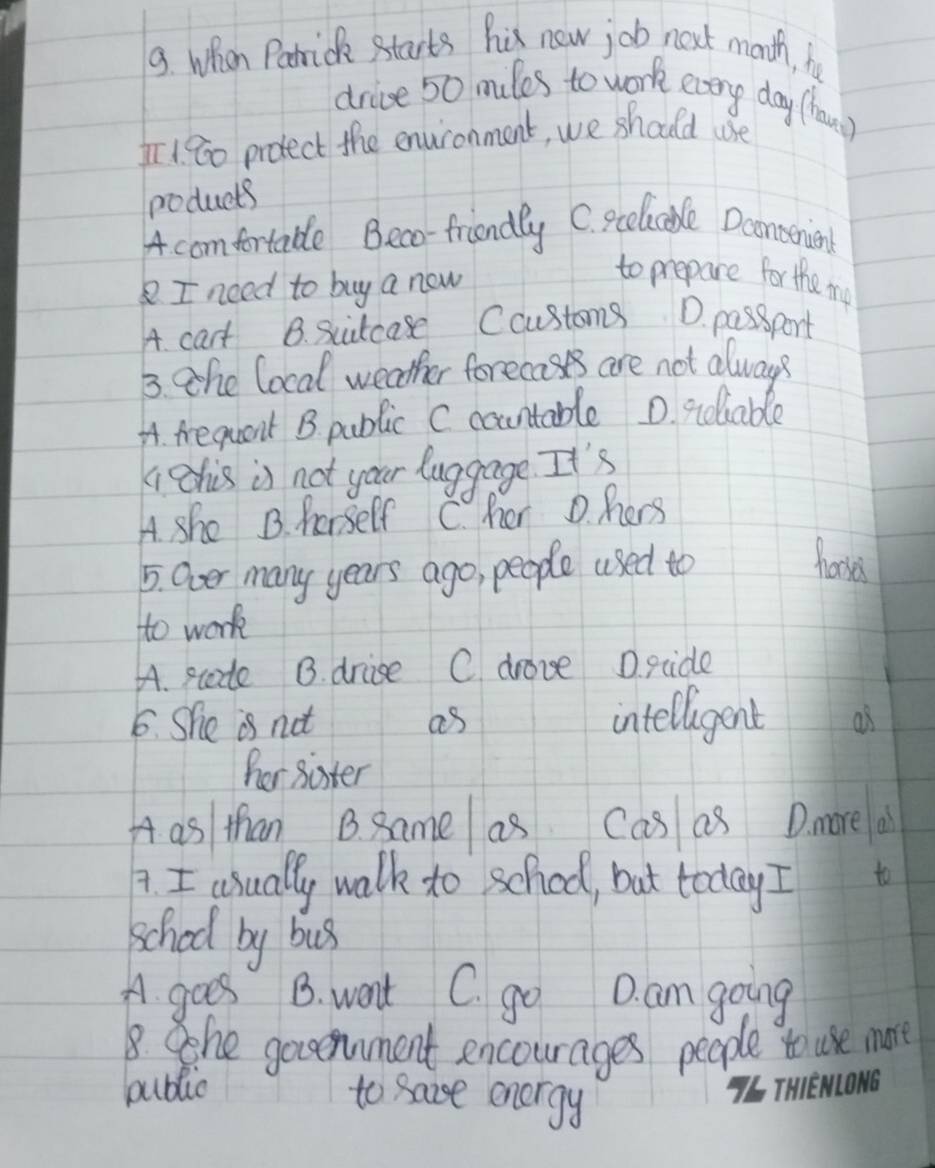 9. When Patrick starts his new job next month, he
drive 50 miles to work every day (have)
II 1. To protect the environment, we should use
poducts
A. comfortable B eco-friendly C. reliable D convenient
2 I need to buy a new to prepare for the trip
A. cart B. Suitcase C customs D. passport
3. The local weather forecasts are not always
A. frequent B. public C countable D. reliable
4. This is not your luggage. It's
A. she B. herself C. her D. hers
5. Over many years ago, people used to horses
to work
A. rode B. drive C drove D. ride
6. She is not as intelligent as
her sister
A. as/than B. same/as C as/as D. more/as
7. I usually walk to school, but today I to
school by bus
A. goes B. went C. go D. am going
8. The government encourages people to use more
public to save energy
TL THIÊN LONG